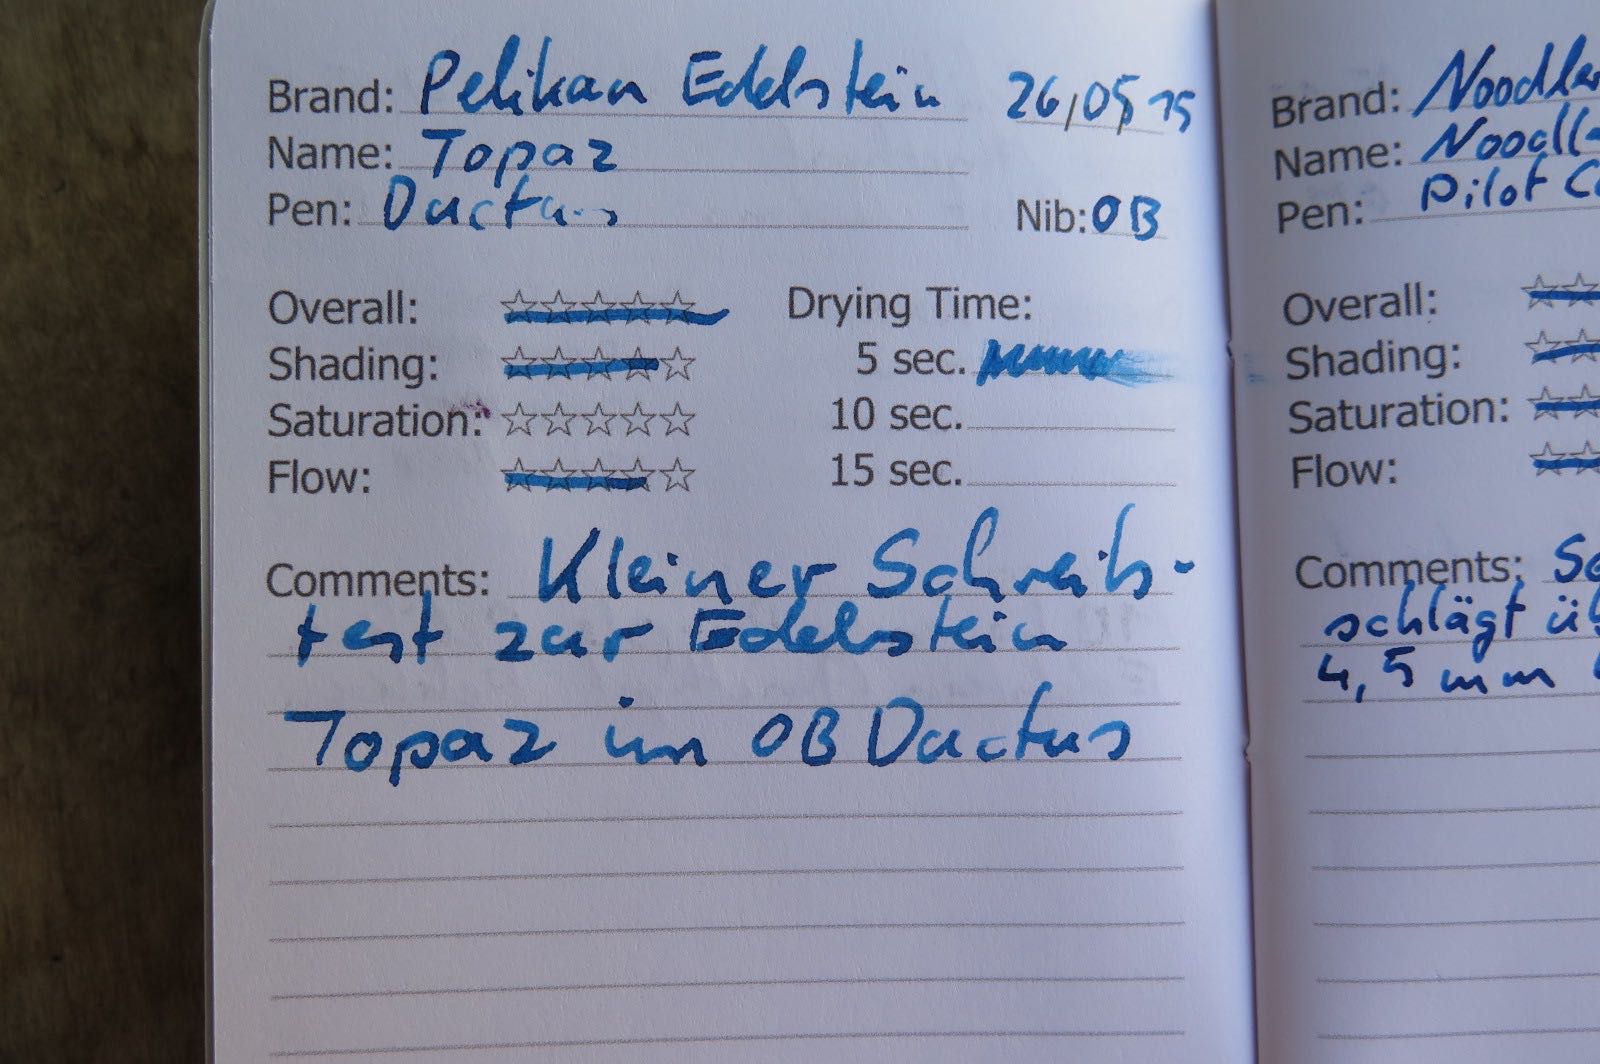 Brand: Pelikan Edelstein 26/05/15
Name: Topaz
Pen: Dactus Nib: OB
Overall: ☆☆☆☆☆ Drying Time:
Shading: ☆☆☆☆☆ 5 sec.
Saturation: ☆☆☆☆☆ 10 sec.
Flow: ☆☆☆☆☆ 15 sec.
Comments: Kleiner Schreib-
test zur Edelstein
Topaz im OB Dactus
Brand: Noodle
Name: Noodl
Pen: Pilot C
Overall: ☆☆
Shading: ☆☆
Saturation: ☆☆
Flow: ☆☆
Comments: Sc
schlägt üb
4,5 mm